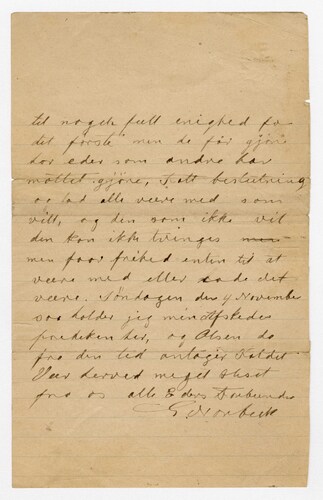 til nogen full enighed for
det første men de får gjøre
hos eder som andre har
måttet gjøre, fatt beslutning
og lad alle være med som
vill, og den som ikke vil
den kan ikke tvinges
men faar frihed enten til at
være med eller lade det
være. Søndagen den 9 November
saa holder jeg min Afskeds
præken her, og Olsen da
fra den tid antager Kaldet
Vær herved meget hilset
fra os alle Eders Forbundne
G Norbeck